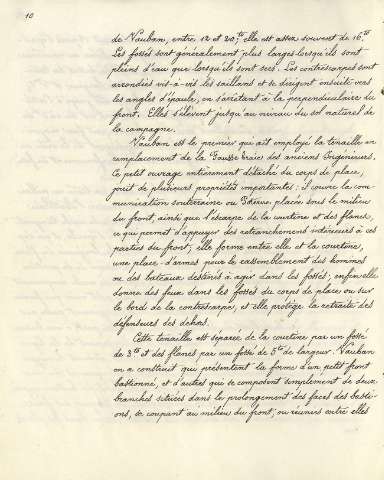 10
de Vauban, entre 12 et 20 ts elle est assez souvent de 16 ts
Les fossés sont généralement plus larges lorsqu'ils sont
pleins d'eau que lorsqu'ils sont secs. Les contrescarpes sont
arrondies vis-à-vis les saillants et se dirigent ensuite vers
les angles d'épaule, en s'arrêtant à la perpendiculaire du
front. Elles s'élèvent jusqu'au niveau du sol naturel de
la campagne.
Vauban est le premier qui ait employé la tenaille en
remplacement de la Fausse braie des anciens Ingénieurs.
Ce petit ouvrage entièrement détaché du corps de place,
jouit de plusieurs propriétés importantes: Il couvre la com-
munication souterraine ou Poterne placée sous le milieu
du front, ainsi que l'escarpe de la courtine et des flancs,
ce qui permet d'appuyer des retranchements intérieurs à ces
parties du front; elle forme entre elle et la courtine,
une place d'armes pour le rassemblement des hommes
ou des bateaux destinés à agir dans les fossés; enfin elle
donne des feux dans les fossés du corps de place ou sur
le bord de la contrescarpe, et elle protège la retraite des
défenseurs des dehors.
Cette tenaille est séparée de la courtine par un fossé
de 3 ts et des flancs par un fossé de 5 ts de largeur. Vauban
en a construit qui présentent la forme d'un petit front
bastionné, et d'autres qui se composent simplement de deux
branches situées dans le prolongement des faces des basti-
ons, se coupant au milieu du front, ou réunies entre elles